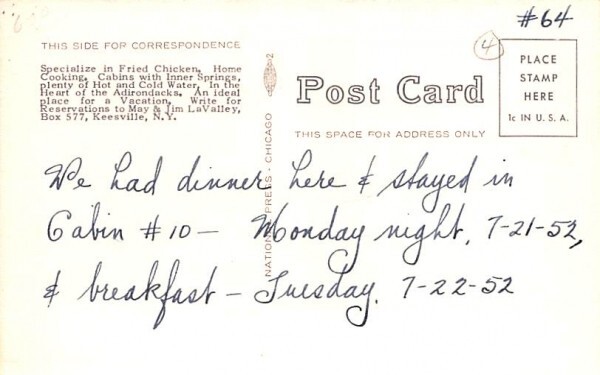 #64
4
THIS SIDE FOR CORRESPONDENCE
Specialize in Fried Chicken, Home
Cooking, Cabins with Inner Springs,
plenty of Hot and Cold Water, In the
Heart of the Adirondacks. An ideal
place for a Vacation. Write for
Reservations to May & Jim LaValley,
Box 577, Keesville, N.Y.
NATIONAL PRESS - CHICAGO
2
Post Card
THIS SPACE FOR ADDRESS ONLY
PLACE
STAMP
HERE
1c IN U.S.A.
We had dinner here & stayed in
Cabin #10 — Monday night, 7-21-52,
& breakfast - Tuesday. 7-22-52